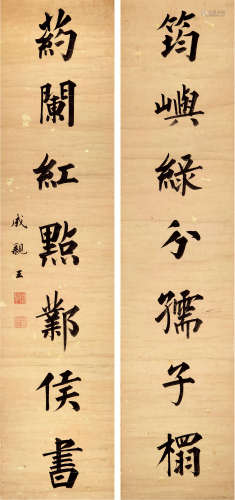 筠嶼綠分孺子榻
葯闌紅點鄴侯書
成親王